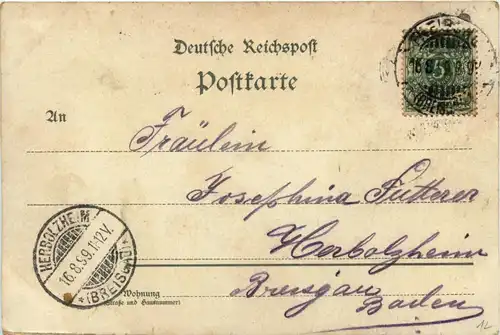 Deutsche Reichspost
Postkarte
16.8.
An
Fräulein
Josephina Futterer
Herbolzheim
HERBOLZHEIM
16.8.99.11-12V.
*(BREISGAU)*
Breisgau
Baden
Wohnung
(Straße und Hausnummer)